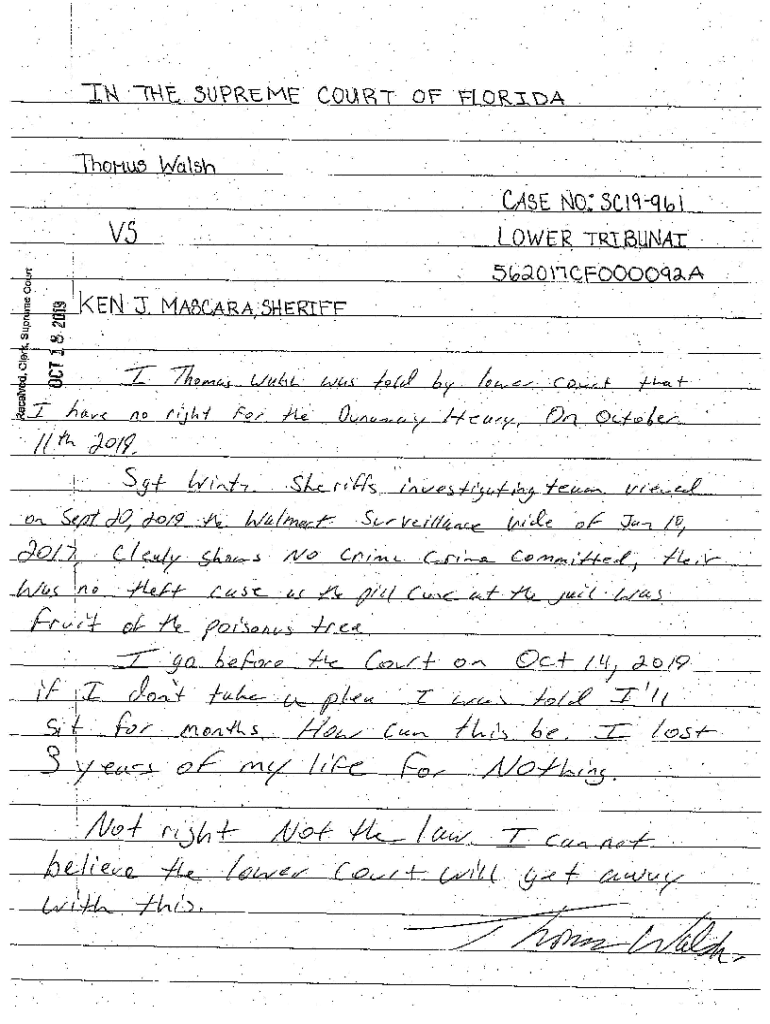 IN THE SUPREME COURT OF FLORIDA
Thomus Walsh
CASE NO: SC19-961
VS
LOWER TRIBUNAL
562017CF000092A
KEN J. MASCARA, SHERIFF
Received, Clerk, Supreme Court
OCT 18 2019
I Thomas Walsh was told by lower court that
I have no right For the Dunaway Hearing, On October
11th 2019.
Sgt Wintz Sheriffs investigating team viewed
on Sept 20, 2019 the Walmart Surveillance vide of Jan 10,
2017, Clearly shows NO Crime Crime Committed, their
was no theft case as the pill Case at the jail was
Fruit of the poisonus tree.
I go before the Court on Oct 14, 2019
if I don't take a plea I was told I'll
sit for months. How can this be. I lost
3 years of my life For Nothing.
Not right Not the law. I cannot
believe the lower Court will get away
with this.
Thomas Walsh.